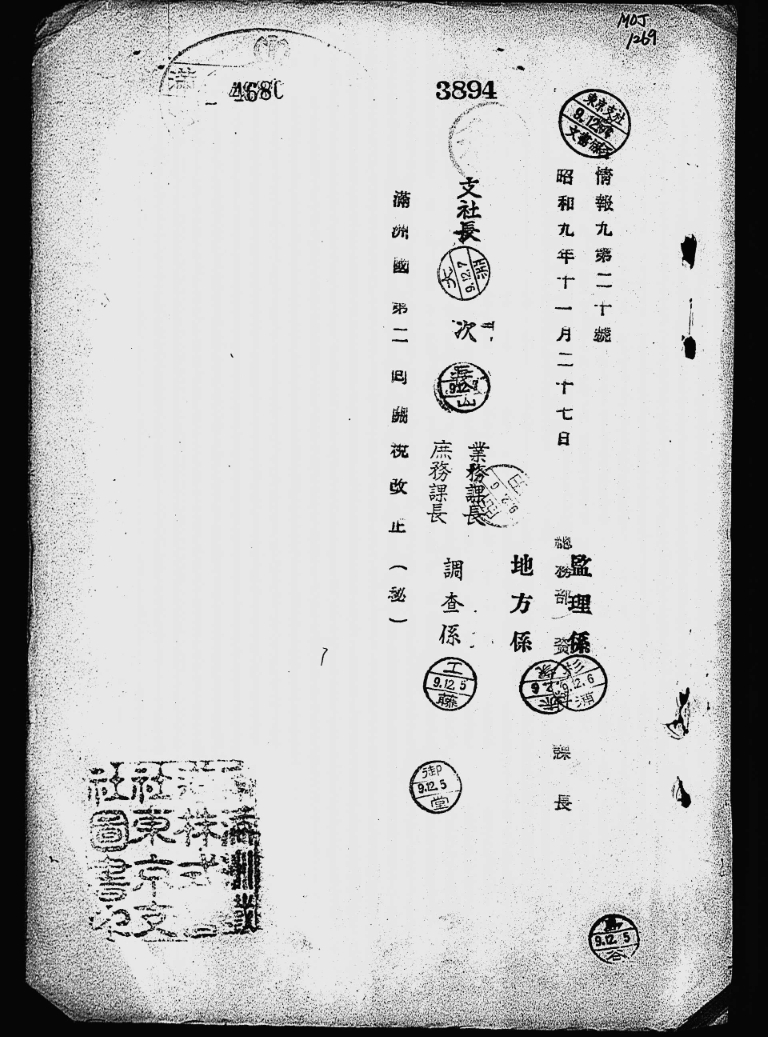 MOJ
1269
3894
東京支社
9.12
文書係
情報九第二十號
昭和九年十一月二十七日
總務部 資 課長
監理係
地方係
9.12.6
支社長
9.12.7
次
9.12.7
山
業務課長
庶務課長
9.12.
調査係
工
9.12.5
藤
御
9.12.5
堂
滿洲國第二回關稅改正(祕)
滿洲
株式
社東京支
社圖書
9.12.5
谷